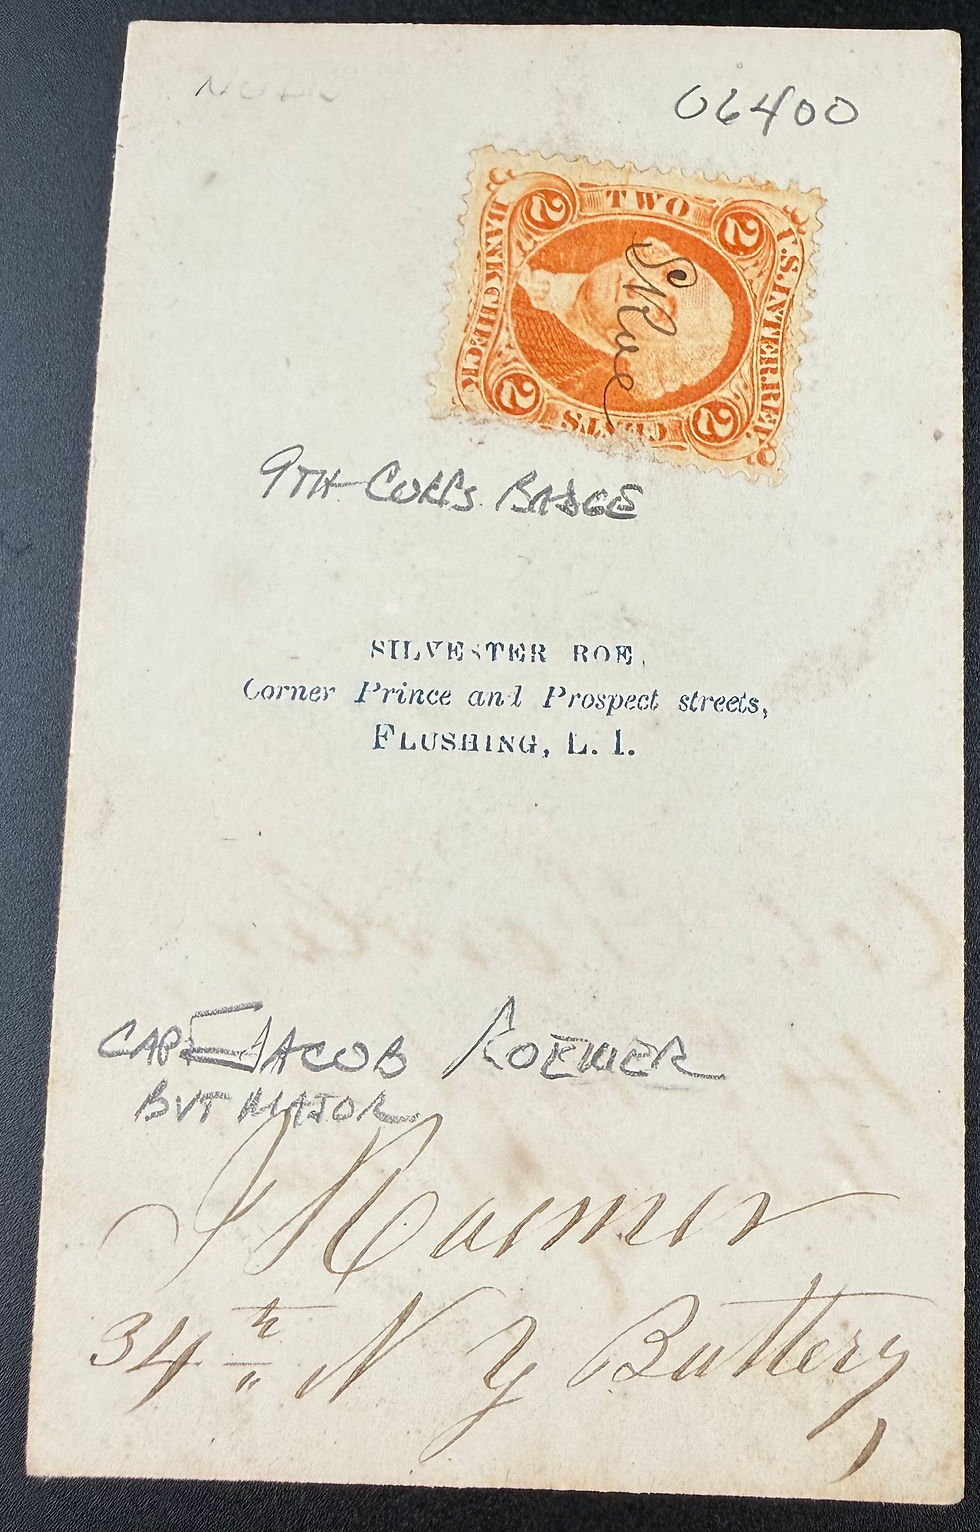 06400
TWO
2 2
U.S. INTER. REV.
BANK CHECK
S Roe
2 2
CENTS
9TH CORPS BADGE
SILVESTER ROE,
Corner Prince and Prospect streets,
FLUSHING, L. I.
CAPT JACOB ROEMER
BVT MAJOR
J Roemer
34th N Y Battery